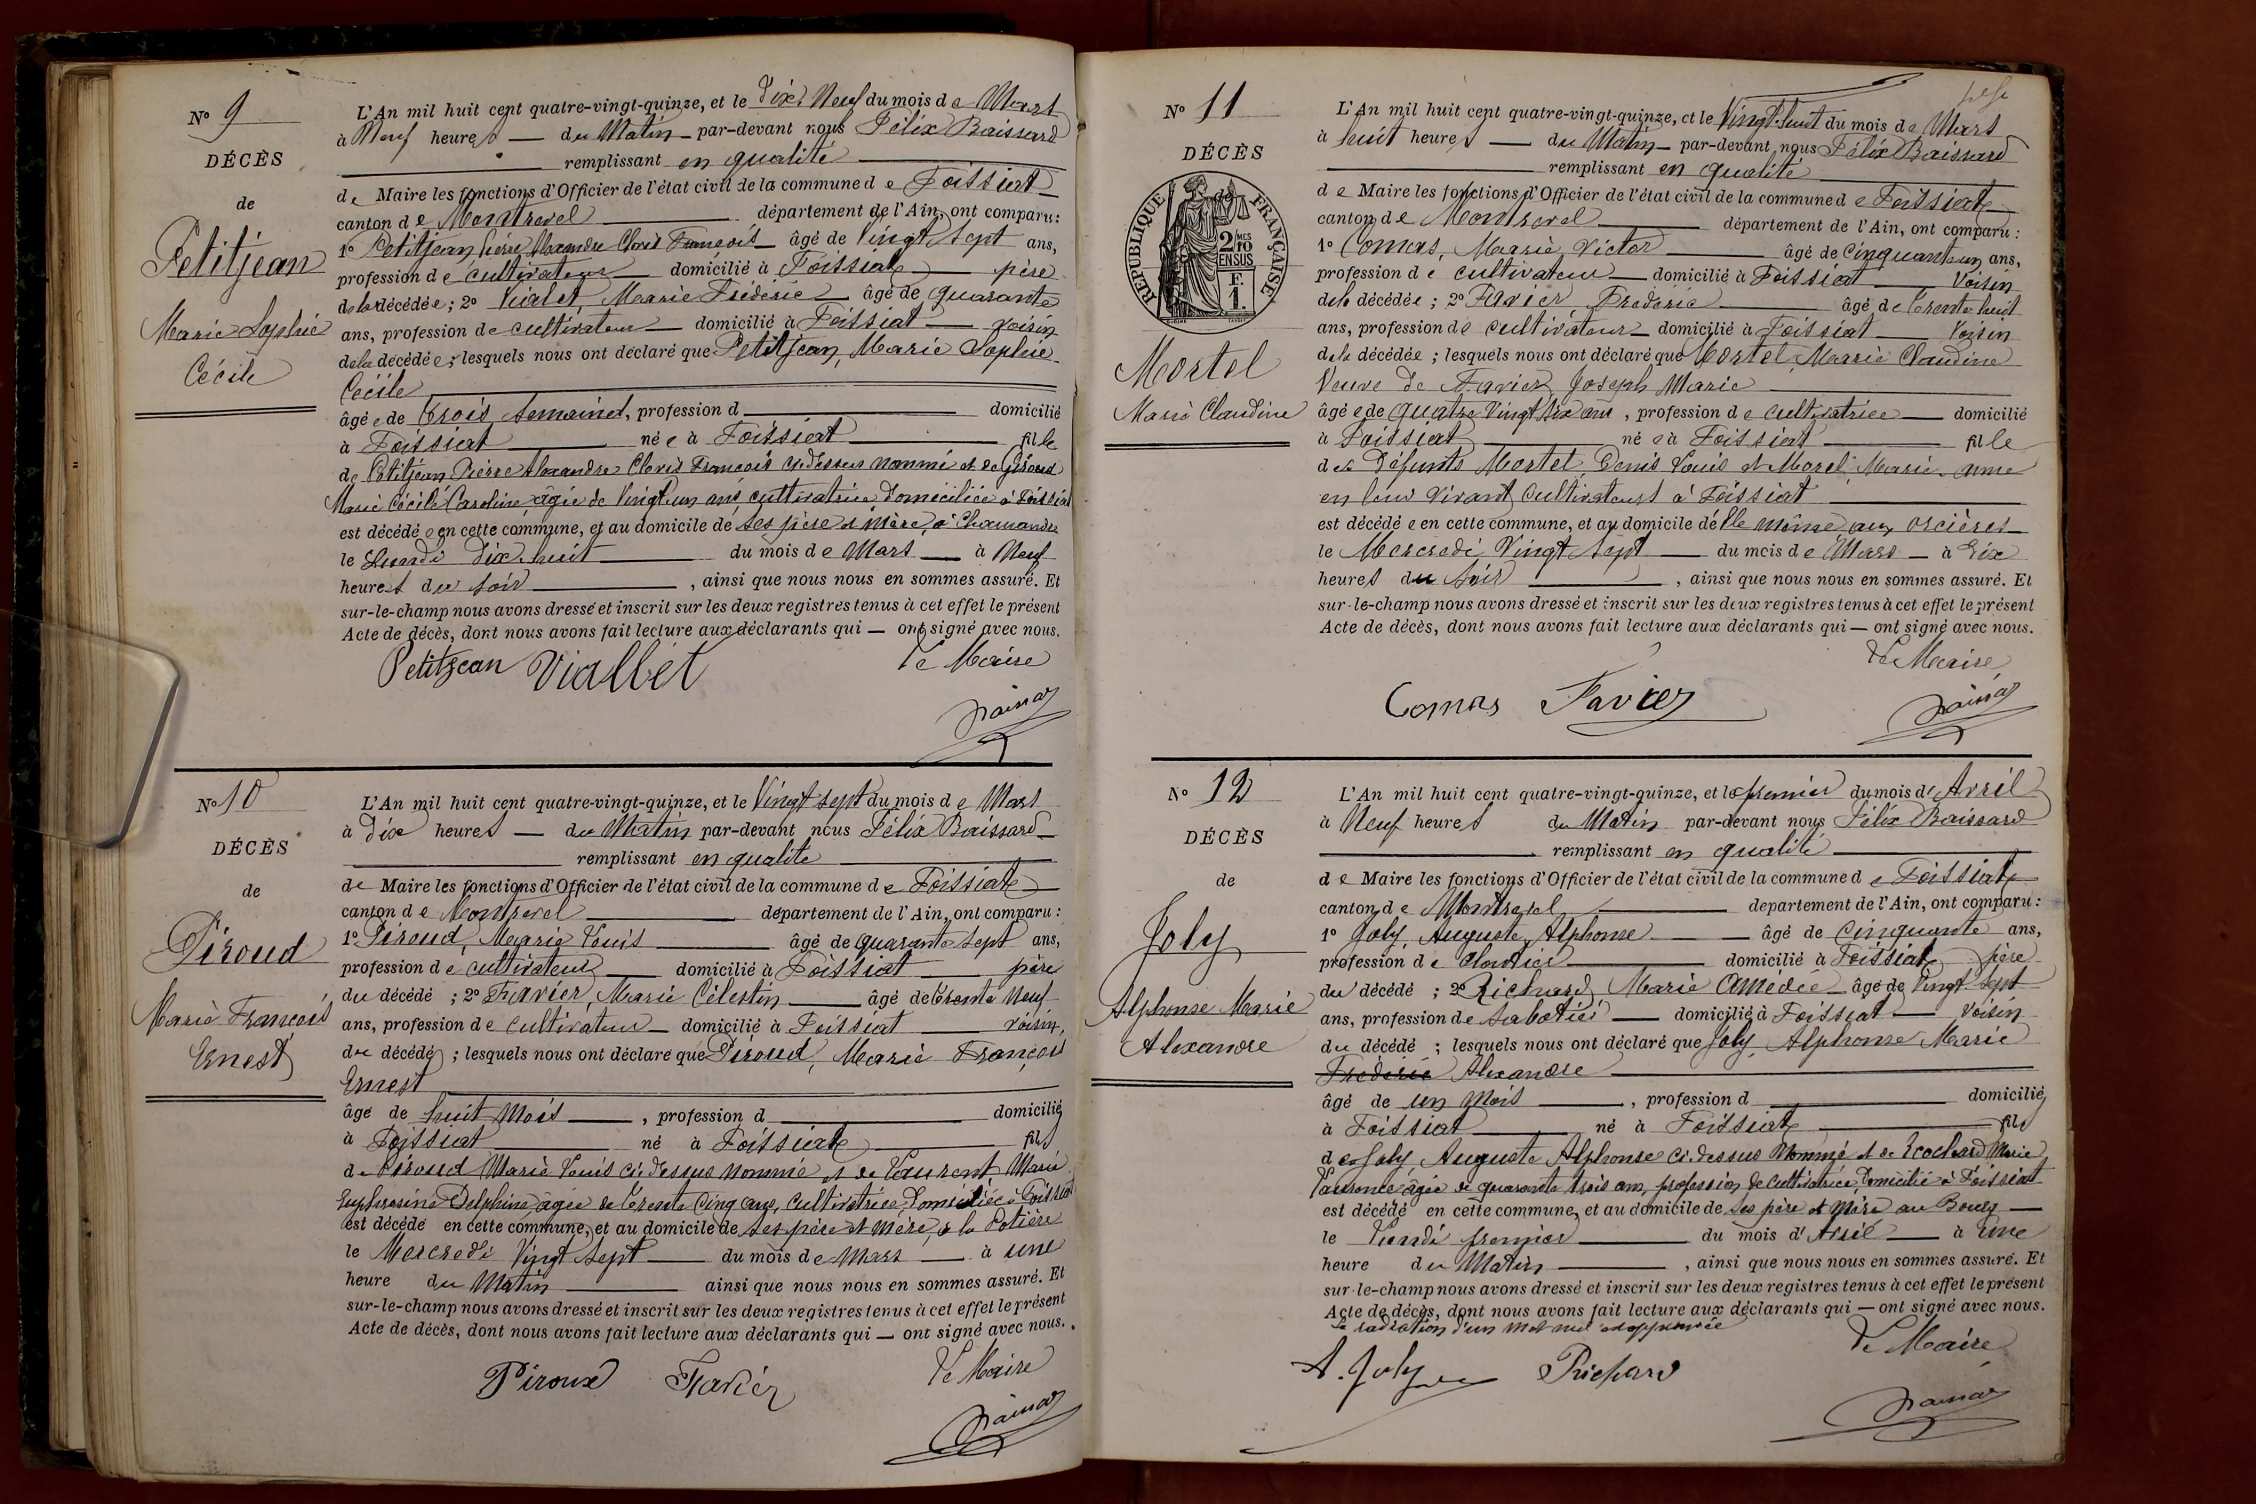 N° 9
DÉCÈS
de
Petitjean
Marie Sophie
Cécile
L'An mil huit cent quatre-vingt-quinze, et le Dix Neuf du mois de Mars
à Neuf heures — du Matin — par-devant nous Félix Baissard
remplissant en qualité
de Maire les fonctions d'Officier de l'état civil de la commune de Foissiat
canton de Montrevel département de l'Ain, ont comparu:
1° Petitjean Pierre Alexandre Clovis François âgé de Vingt Sept ans,
profession de cultivateur domicilié à Foissiat père
de la décédée; 2° Vialet, Marie Frédéric âgé de quarante
ans, profession de cultivateur domicilié à Foissiat voisin
de la décédée; lesquels nous ont déclaré que Petitjean, Marie Sophie
Cécile
âgée de trois semaines, profession d domicilié
à Foissiat née à Foissiat fille
de Petitjean Pierre Alexandre Clovis François ci-dessus nommé et de Piroud
Marie Cécile Caroline âgée de vingt un ans, cultivatrice domiciliée à Foissiat
est décédée en cette commune, et au domicile de ses père et mère, à Chamandre
le Lundi dix huit du mois de Mars à Neuf
heures du soir, ainsi que nous nous en sommes assuré. Et
sur-le-champ nous avons dressé et inscrit sur les deux registres tenus à cet effet le présent
Acte de décès, dont nous avons fait lecture aux déclarants qui — ont signé avec nous.
Le Maire
Petitjean Viallet
N° 10
DÉCÈS
de
Piroud
Marie François
Ernest
L'An mil huit cent quatre-vingt-quinze, et le Vingt sept du mois de Mars
à Dix heures — du Matin par-devant nous Félix Baissard
remplissant en qualité
de Maire les fonctions d'Officier de l'état civil de la commune de Foissiat
canton de Montrevel département de l'Ain, ont comparu:
1° Piroud, Marie Louis âgé de quarante sept ans,
profession de cultivateur domicilié à Foissiat père
du décédé; 2° Favier, Marie Célestin âgé de trente neuf
ans, profession de cultivateur domicilié à Foissiat voisin,
du décédé; lesquels nous ont déclaré que Piroud, Marie François
Ernest
âgé de huit mois, profession d domicilié
à Foissiat né à Foissiat fils
de Piroud Marie Louis ci-dessus nommé et de Laurent Marie
Euphrosine Delphine âgée de trente cinq ans, cultivatrice, domiciliée à Foissiat
est décédé en cette commune, et au domicile de ses père et mère, à la Potière
le Mercredi Vingt sept du mois de Mars à une
heure du Matin ainsi que nous nous en sommes assuré. Et
sur-le-champ nous avons dressé et inscrit sur les deux registres tenus à cet effet le présent
Acte de décès, dont nous avons fait lecture aux déclarants qui — ont signé avec nous.
Le Maire
Piroux Favier
N° 11
DÉCÈS
RÉPUBLIQUE FRANÇAISE
2 MES 10
EN SUS
F. 1.
Mortel
Marie Claudine
L'An mil huit cent quatre-vingt-quinze, et le Vingt-huit du mois de Mars
à huit heures — du Matin — par-devant nous Félix Baissard
remplissant en qualité
de Maire les fonctions d'Officier de l'état civil de la commune de Foissiat
canton de Montrevel département de l'Ain, ont comparu:
1° Comas, Marie Victor âgé de cinquante un ans,
profession de cultivateur domicilié à Foissiat Voisin
de la décédée; 2° Favier, Frédéric âgé de trente huit
ans, profession de cultivateur domicilié à Foissiat Voisin
de la décédée; lesquels nous ont déclaré que Mortel, Marie Claudine
Veuve de Favier, Joseph Marie
âgée de quatre vingt dix ans, profession de cultivatrice domicilié
à Foissiat née à Foissiat fille
des défunts Mortel, Denis Louis et Morel, Marie Anne
en leur vivant cultivateurs à Foissiat
est décédée en cette commune, et au domicile d'elle même aux Orcières
le Mercredi Vingt Sept du mois de Mars à Six
heures du Soir, ainsi que nous nous en sommes assuré. Et
sur-le-champ nous avons dressé et inscrit sur les deux registres tenus à cet effet le présent
Acte de décès, dont nous avons fait lecture aux déclarants qui — ont signé avec nous.
Le Maire
Comas Favier
N° 12
DÉCÈS
de
Joly
Alphonse Marie
Alexandre
L'An mil huit cent quatre-vingt-quinze, et le premier du mois d'Avril
à Neuf heures du Matin par-devant nous Félix Baissard
remplissant en qualité
de Maire les fonctions d'Officier de l'état civil de la commune de Foissiat
canton de Montrevel département de l'Ain, ont comparu:
1° Joly, Auguste Alphonse âgé de cinquante ans,
profession de cloutier domicilié à Foissiat père
du décédé; 2° Richard Marie Amédée âgé de Vingt sept
ans, profession de sabotier domicilié à Foissiat Voisin
du décédé; lesquels nous ont déclaré que Joly, Alphonse Marie
Frédéric Alexandre
âgé de un mois, profession d domicilié
à Foissiat né à Foissiat fils
de Joly, Auguste Alphonse ci-dessus nommé et de Ecochard Marie
Laurence âgée de quarante trois ans, profession de cultivatrice, domicilié à Foissiat
est décédé en cette commune, et au domicile de ses père et mère au Bourg
le Lundi premier du mois d'Avril à Une
heure du Matin, ainsi que nous nous en sommes assuré. Et
sur-le-champ nous avons dressé et inscrit sur les deux registres tenus à cet effet le présent
Acte de décès, dont nous avons fait lecture aux déclarants qui — ont signé avec nous.
la radiation d'un mot nul est approuvée
Le Maire
A. Joly Richard